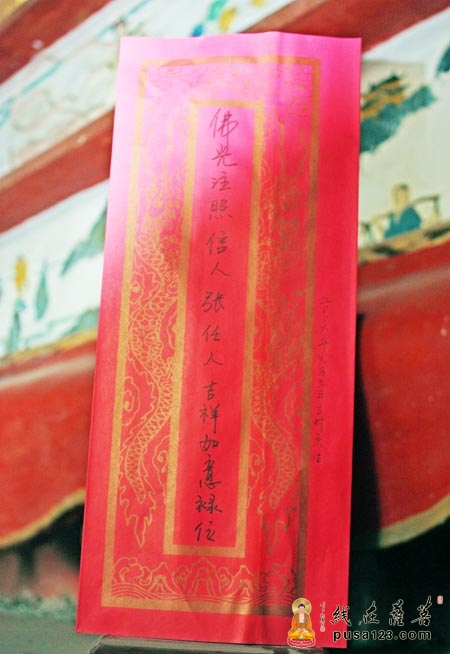 佛光注照信人张任人吉祥如意禄位
线在薩菩
pusa123.com